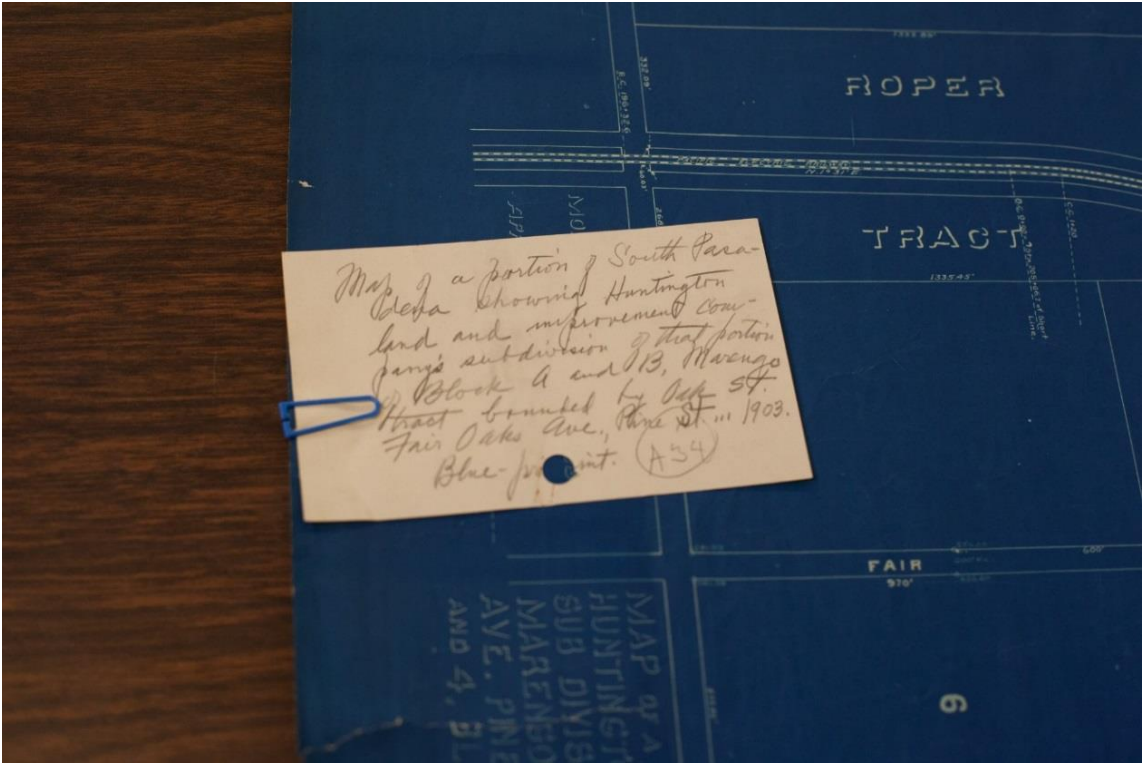 1335.86'
332.09'
ROPER
N.1°31'E
TRACT
1335.45'
Map of a portion of South Pasa-
dena showing Huntington
land and improvement com-
pany's subdivision of that portion
of Block A and B, Marengo
tract bounded by Oak St.
Fair Oaks Ave., Pine St. ... 1903.
Blue-print.
A 34
FAIR
970'
600'
6
MAP OF A
HUNTINGT
SUB DIVIS
MARENGO
AVE. PINE
AND 4, BL